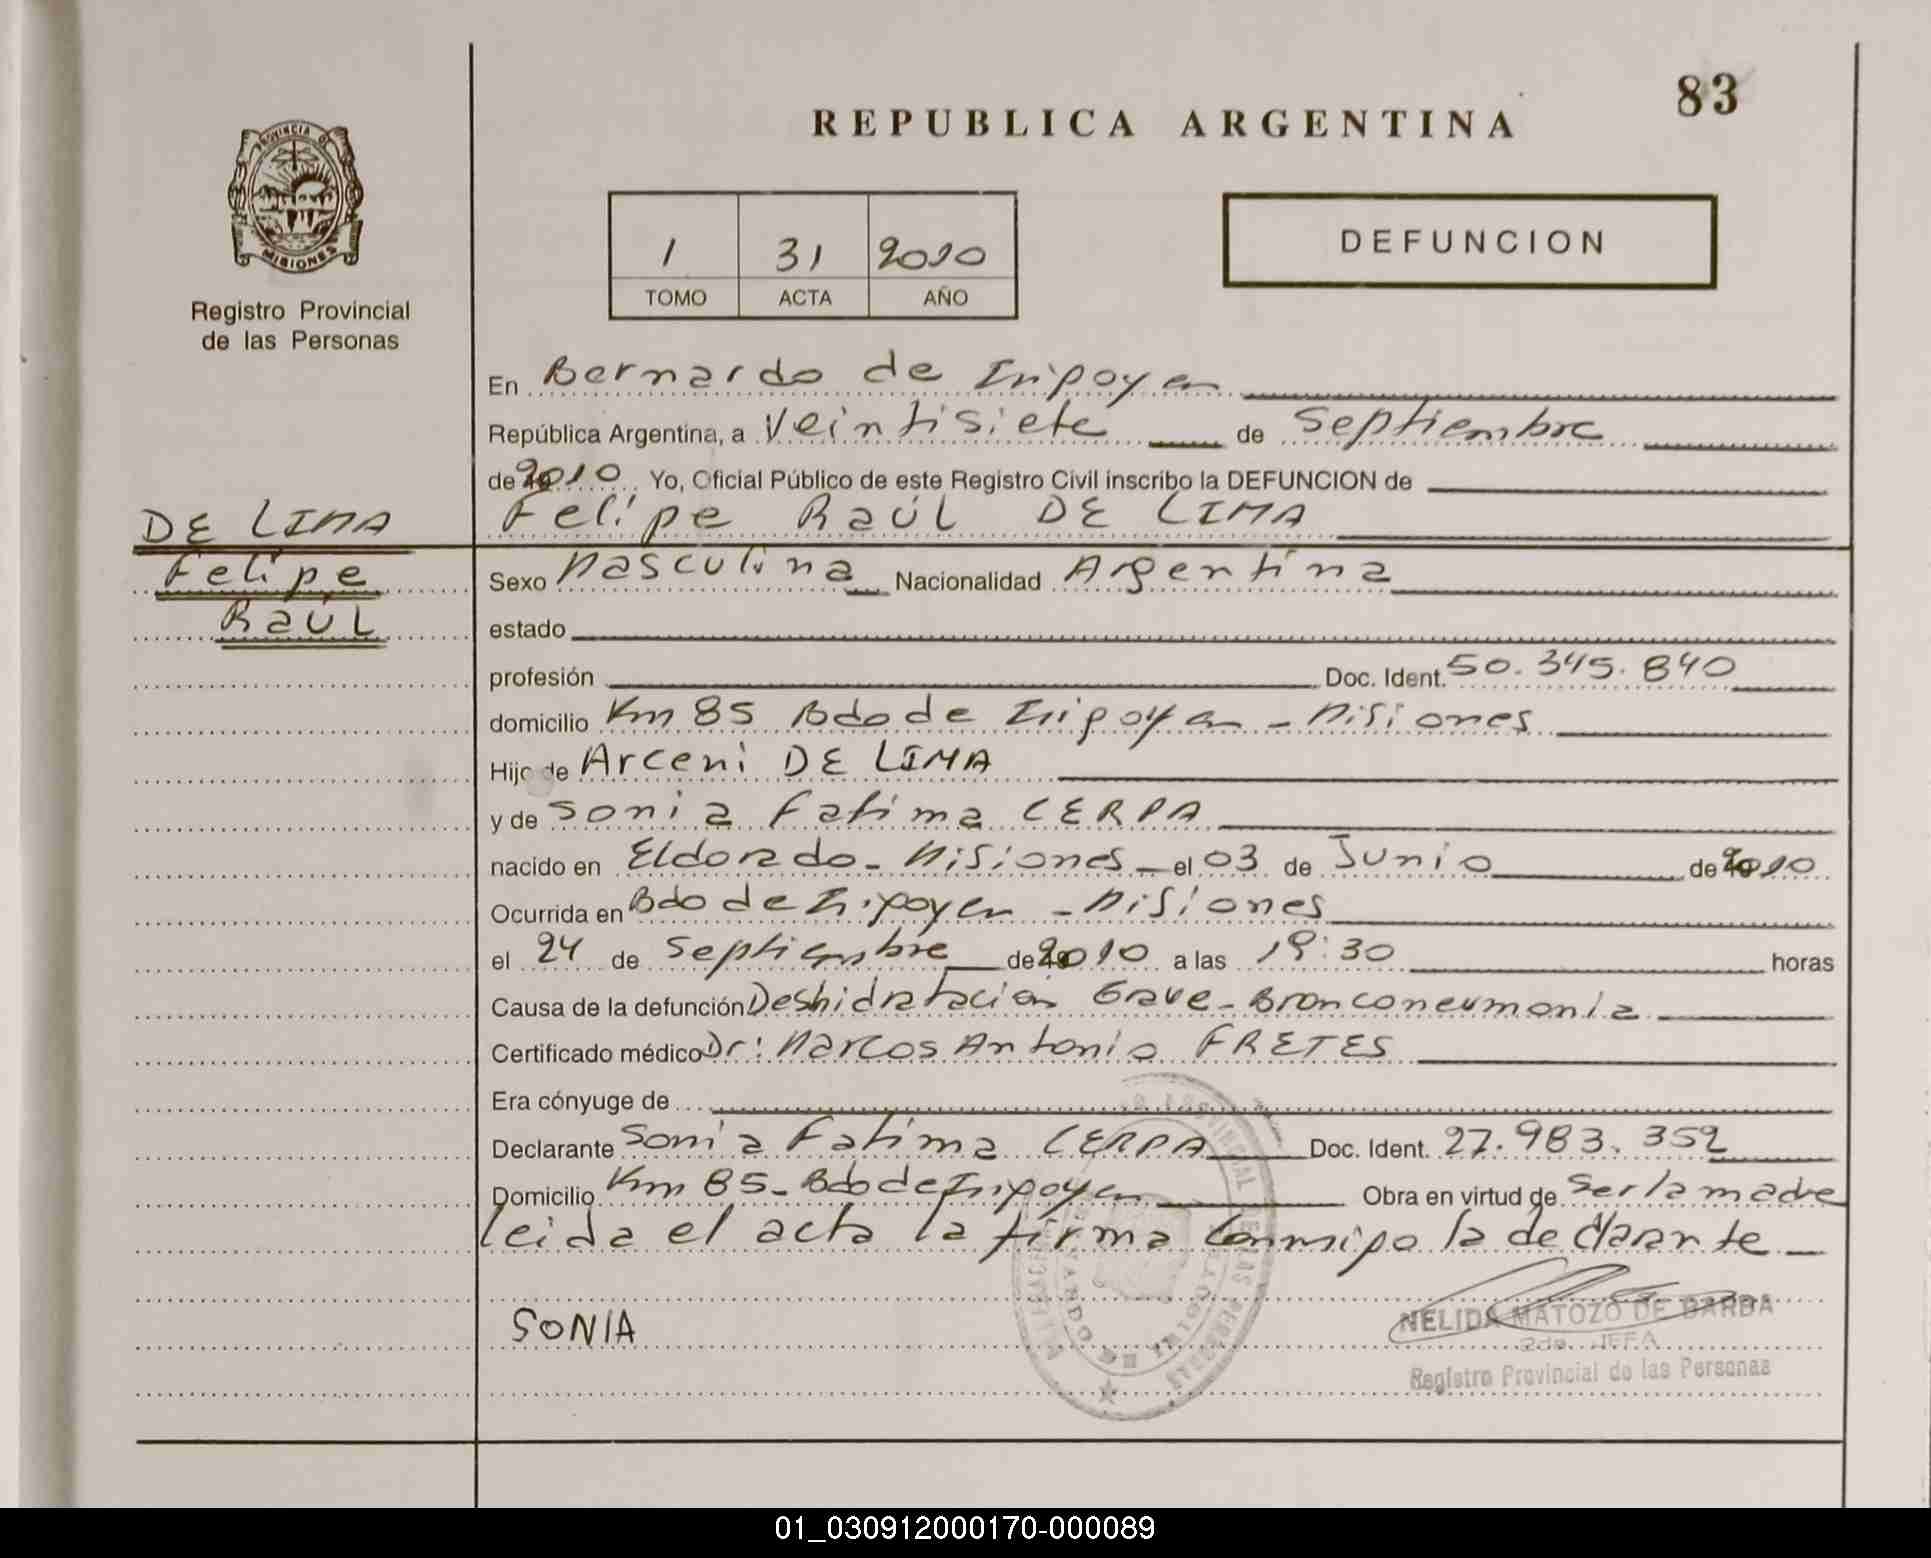 83
REPUBLICA ARGENTINA
PROVINCIA DE
MISIONES
Registro Provincial
de las Personas
1 31 2010
TOMO ACTA AÑO
DEFUNCION
En Bernardo de Irigoyen
República Argentina, a Veintisiete de Septiembre
de 2010 Yo, Oficial Público de este Registro Civil inscribo la DEFUNCION de
Felipe Raúl DE LIMA
DE LIMA
Felipe
Raúl
Sexo Masculina Nacionalidad Argentina
estado
profesión Doc. Ident. 50.345.840
domicilio Km 85 Bdo de Irigoyen - Misiones
Hijo de Arceni DE LIMA
y de Sonia Fatima CERPA
nacido en Eldorado - Misiones - el 03 de Junio de 2010
Ocurrida en Bdo de Irigoyen - Misiones
el 24 de Septiembre de 2010 a las 19:30 horas
Causa de la defunción Deshidratación Grave - Bronconeumonia
Certificado médico Dr: Marcos Antonio FRETES
Era cónyuge de
Declarante Sonia Fatima CERPA Doc. Ident. 27.983.352
Domicilio Km 85 - Bdo de Irigoyen Obra en virtud de Ser la madre
leida el acta la firma Conmigo la declarante
SONIA
NELIDA MATOZO DE BARBA
2da. JEFA
Registro Provincial de las Personas
01_030912000170-000089